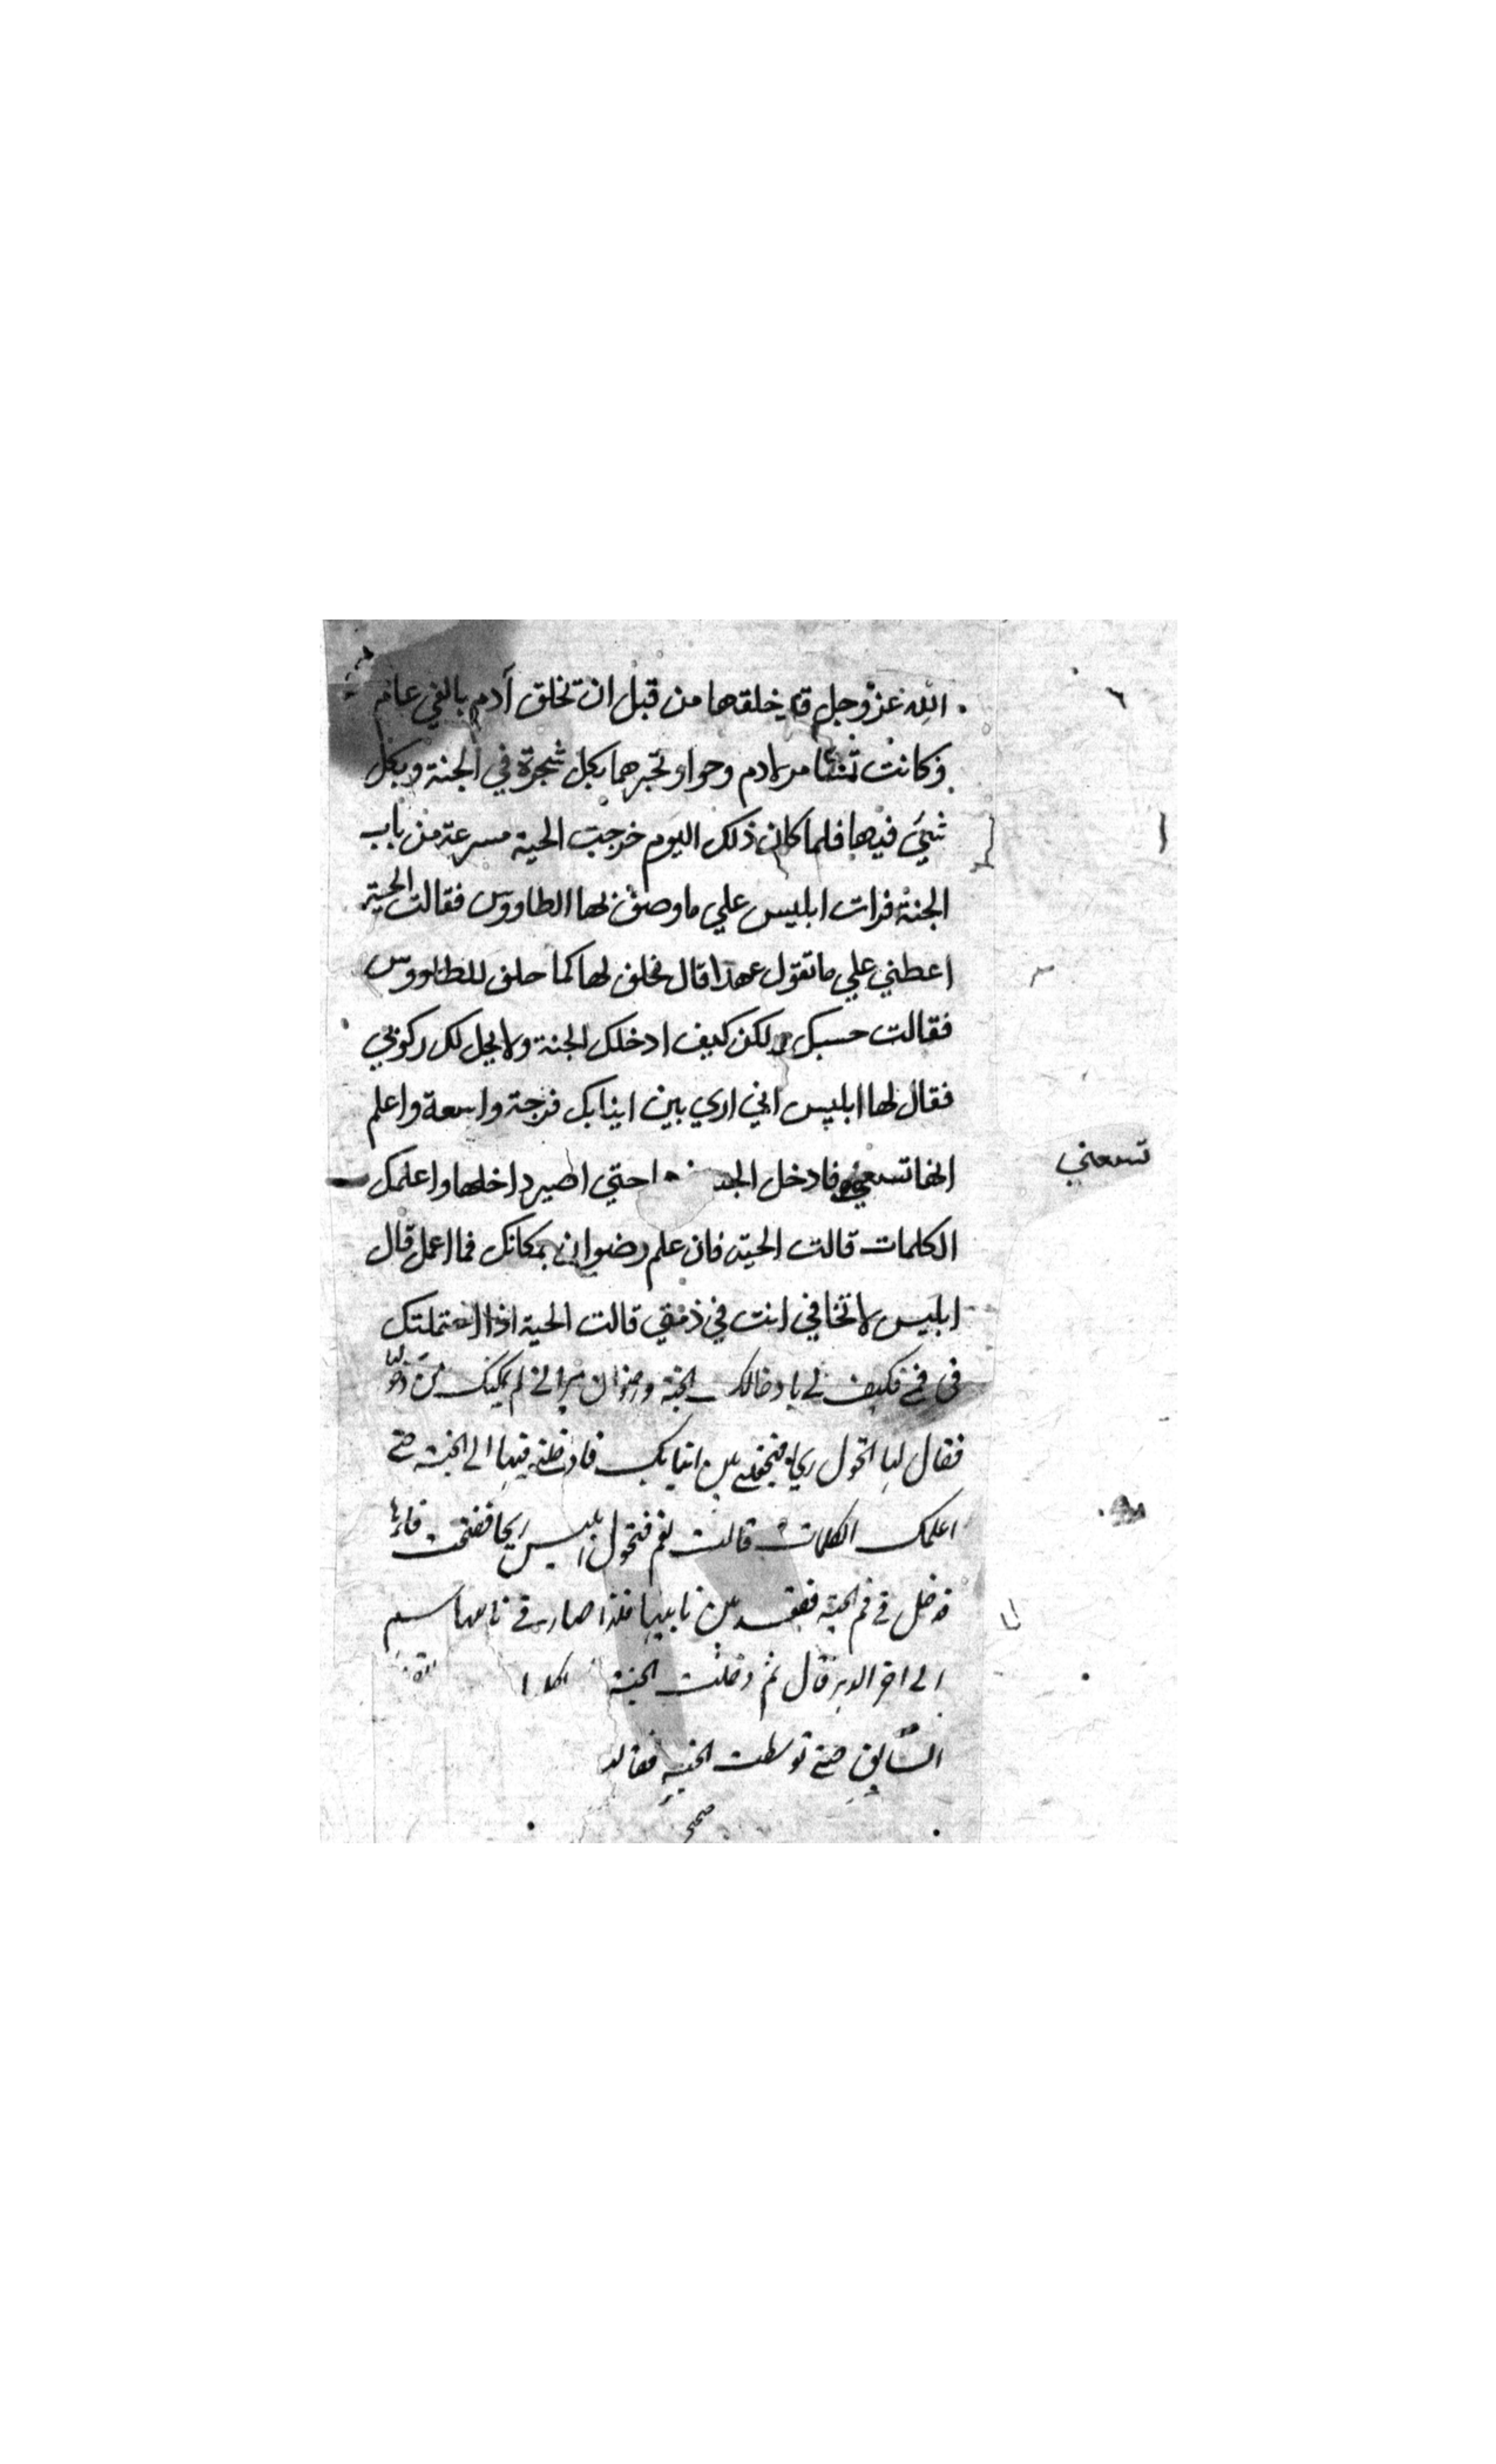 الله عز وجل قد خلقها من قبل ان تخلق آدم بالفي عام
وكانت تسامر لادم وحوا وتخبرهما بكل شجرة في الجنة وبكل
شيء فيها فلما كان ذلك اليوم خرجت الحية مسرعة من باب
الجنة فرات ابليس علي ما وصف لها الطاووس فقالت الحية
اعطني علي ما تقول عهدا قال فحلف لها كما حلف للطاووس
فقالت حسبك ولكن كيف ادخلك الجنة ولا يحل لك ركوبي
فقال لها ابليس اني اري بين انيابك فرجة واسعة واعلم
انها تسعني فادخل حتي اصير داخلها واعلمك
تسعني
الكلمات قالت الحية فان علم رضوان بمكانك فما اعمل قال
ابليس لا تخافي انت في ذمتي قالت الحية اذا احتملتك
في فمي فكيف لي بادخالك الجنة ورضوان لم يمكنك من
فقال لها اتحول ريحا فتجعليني بين انيابك فادخلني فيها الي الجنة حتي
اعلمك الكلمات قالت نعم فتحول ابليس ريحا ففتحت فاها
فدخل في فم الحية فقعد بين نابيها فلذا صار في نابها سم
الي اخر الدهر قال ثم دخلت الجنة
حتي توسطت الجنة فقالت
صح